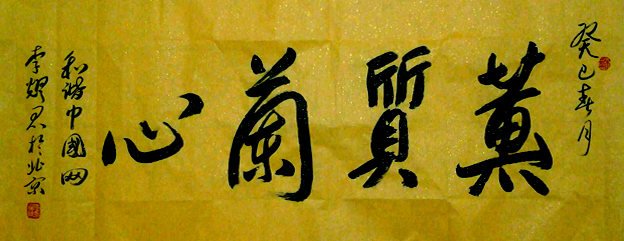 癸巳春月
蕙質蘭心
和谐中國网
李於北京